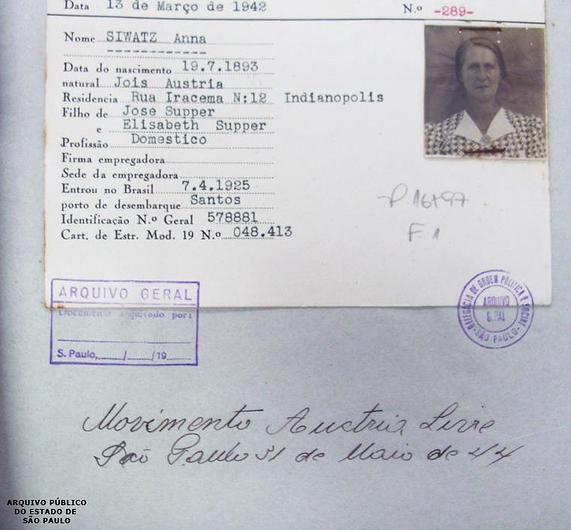 Data 13 de Março de 1942 N.º -289-
Nome SIWATZ Anna
------------
Data do nascimento 19.7.1893
natural Jois Austria
Residencia Rua Iracema N:12 Indianopolis
Filho de Jose Supper
e Elisabeth Supper
Profissão Domestico
Firma empregadora
Sede da empregadora
Entrou no Brasil 7.4.1925
porto de desembarque Santos
Identificação N.º Geral 578881
Cart. de Estr. Mod. 19 N.º 048.413
P 16797
F. 1
ARQUIVO GERAL
Documento arquivado por:
S. Paulo,____/____/19
DELEGACIA DE ORDEM POLITICA E SOCIAL
ARQUIVO
GERAL
SÃO PAULO
Movimento Austria Livre
São Paulo 31 de Maio de 44
ARQUIVO PÚBLICO
DO ESTADO DE
SÃO PAULO